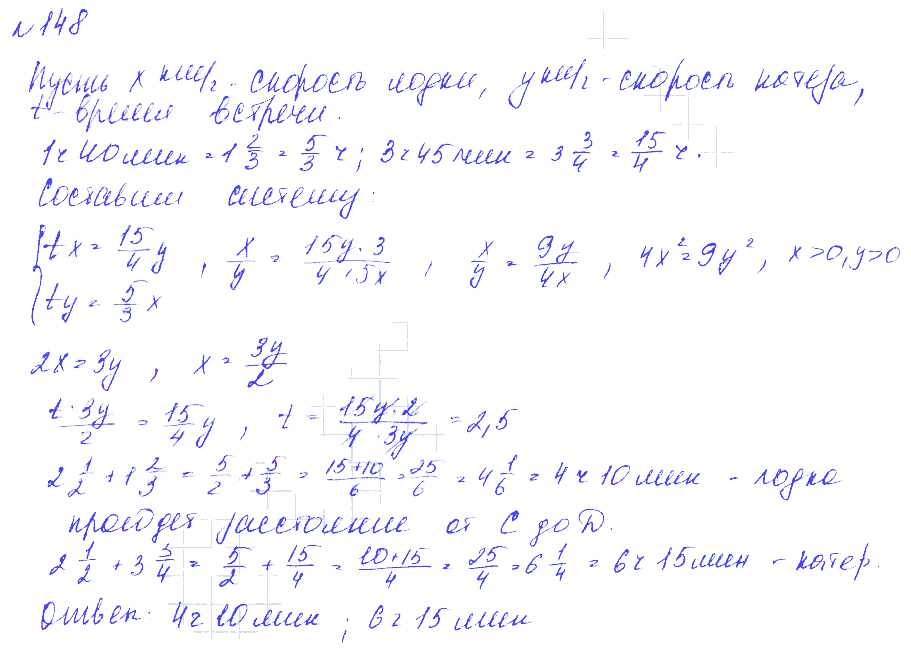 №148
Пусть x км/ч - скорость лодки, y км/ч - скорость катера,
t - время встречи.
1ч 40мин = 1 2/3 = 5/3 ч; 3ч 45мин = 3 3/4 = 15/4 ч.
Составим систему:
{tx = 15/4 y, x/y = 15y·3/4·5x, x/y = 9y/4x, 4x² = 9y², x>0, y>0
{ty = 5/3 x
2x = 3y, x = 3y/2
t·3y/2 = 15/4 y, t = 15y·2/4·3y = 2,5
2 1/2 + 1 2/3 = 5/2 + 5/3 = 15+10/6 = 25/6 = 4 1/6 = 4ч 10мин - лодка
пройдет расстояние от C до D.
2 1/2 + 3 3/4 = 5/2 + 15/4 = 10+15/4 = 25/4 = 6 1/4 = 6ч 15мин - катер.
Ответ: 4ч 10мин; 6ч 15мин